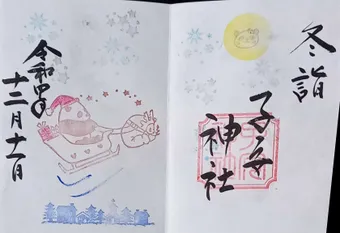 冬詣
子安
神社
令和
十二月十一日